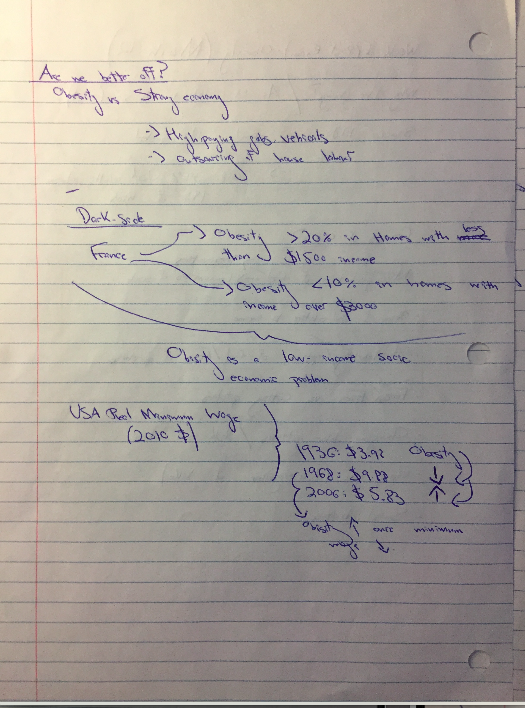 Are we better off?
Obesity vs Strong economy
-> High paying jobs
-> Outsourcing of house labour
Dark-Side
France -> Obesity >20% in Homes with less
than $1500 income
-> Obesity <10% in homes with
income over $3000
Obesity as a low-income socio
economic problem
USA Real Minimum Wage
(2010 $)
1936: $3.92 Obesity
1968: $9.88 ↓
2006: $5.83 ↑
Obesity ↑ once minimum
wage ↓.